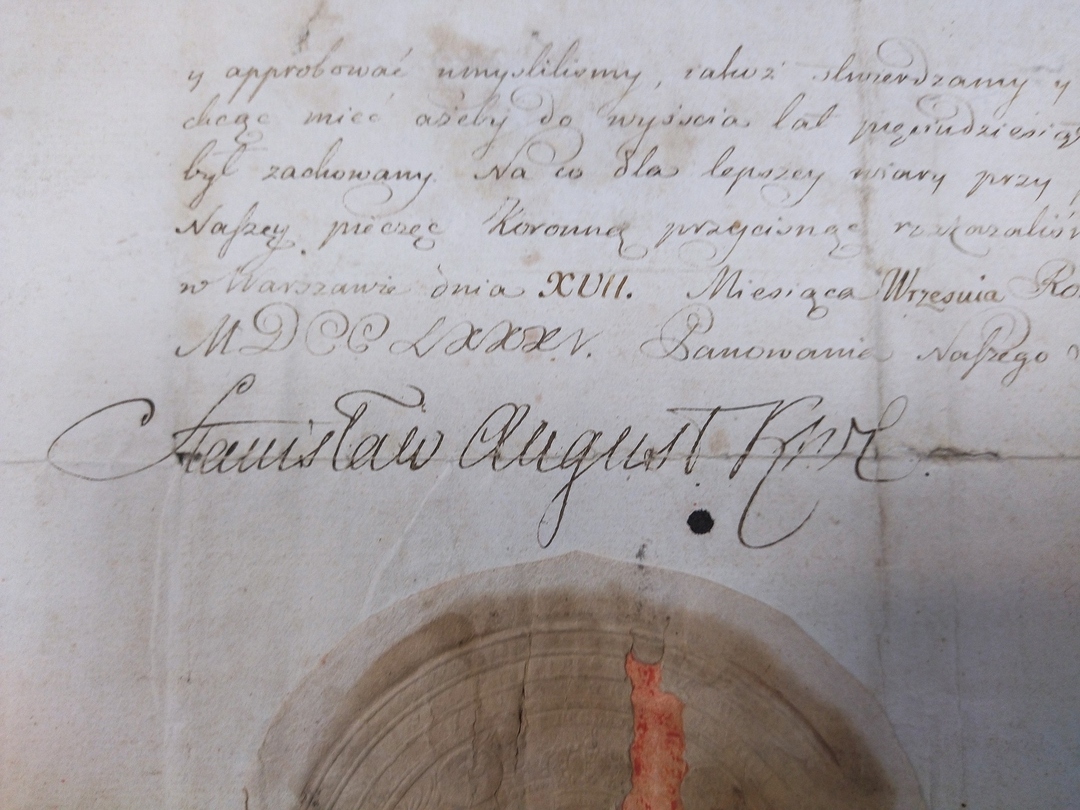 y approbować umyślilismy, iakoż stwierdzamy y
chcąc mieć ażeby do wyiścia lat pięciudziesiąt
był zachowany. Na co dla lepszey wiary przy
Naſzey pieczęć Koronną przycisnąć rozkazaliśm
w Warszawie dnia XVII. Miesiąca Wrzesnia Ro
MDCCLXXXV. Panowania Naſzego
Stanisław August Król